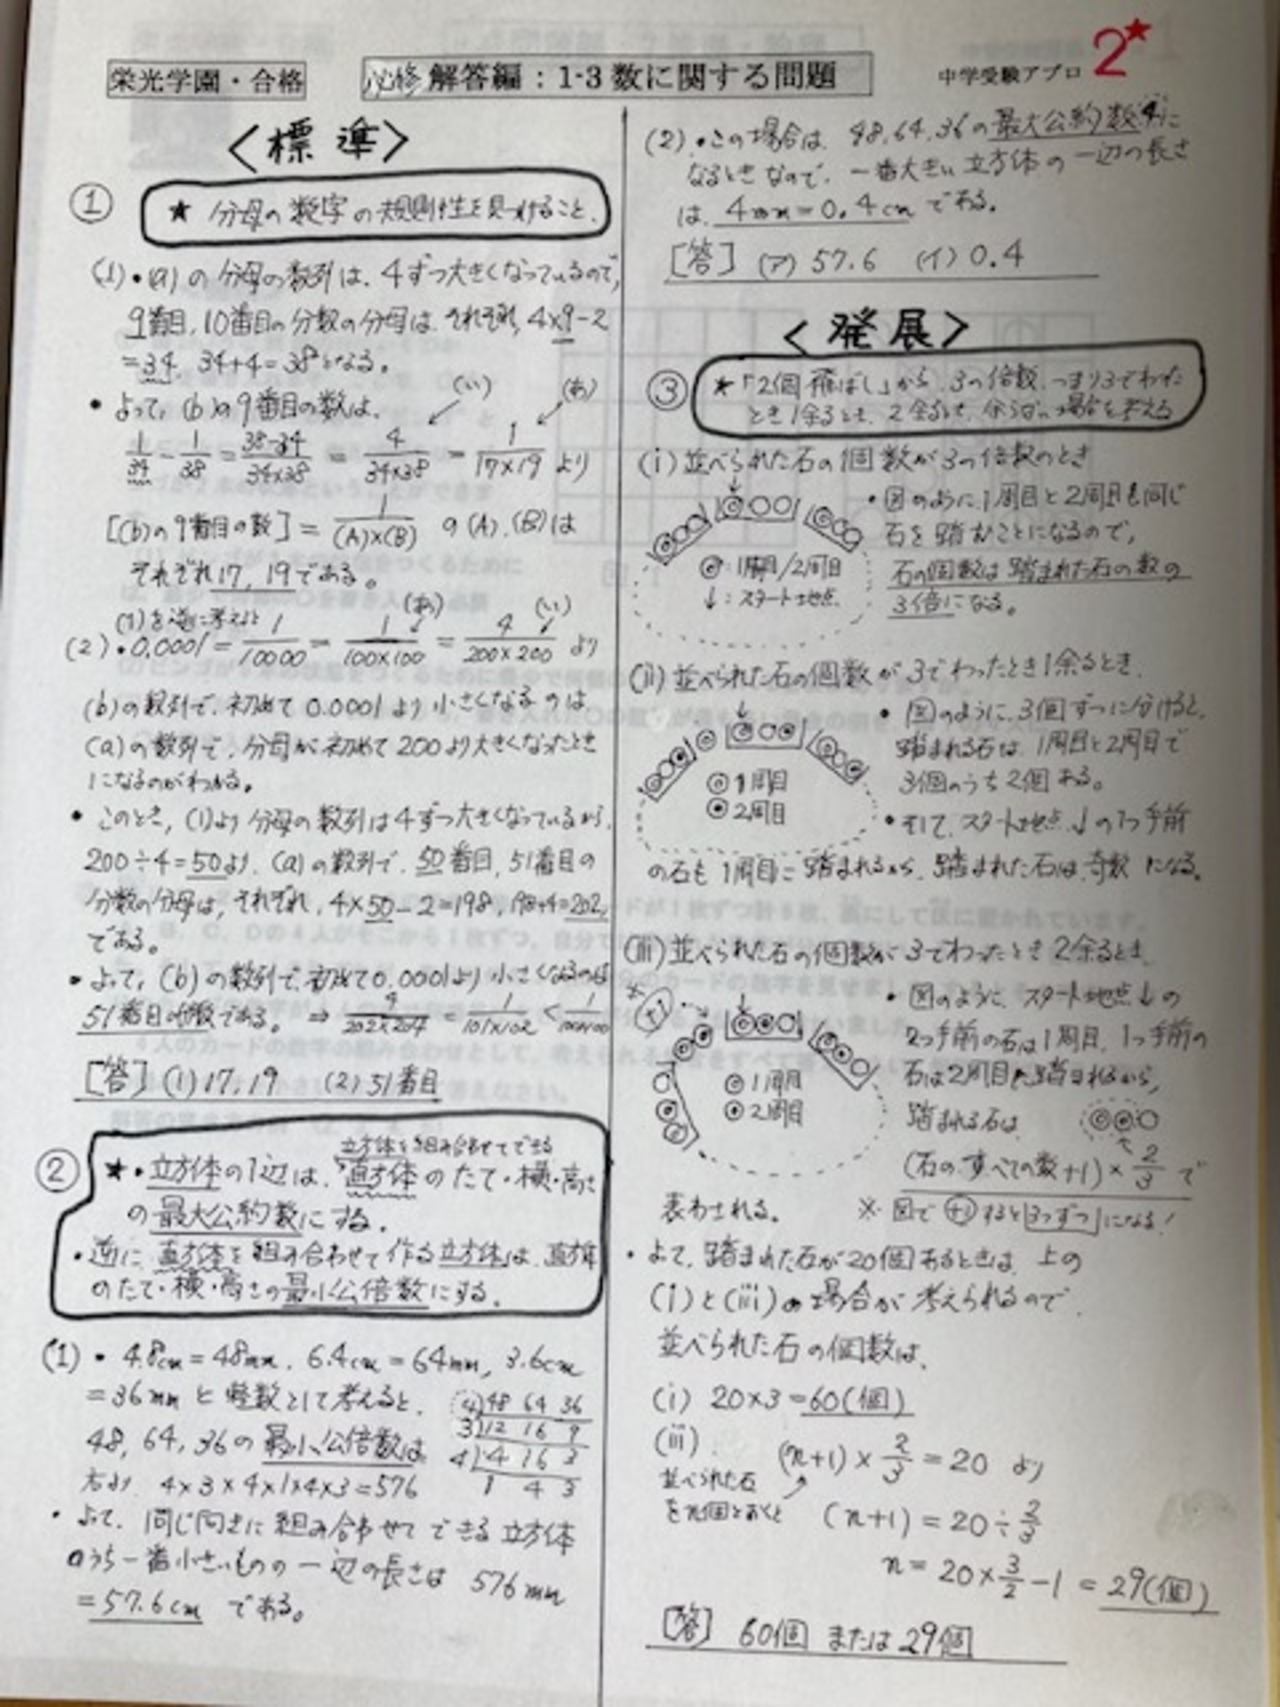 栄光学園・合格
必修 解答編：1-3 数に関する問題
中学受験アプロ
2★
〈標準〉
① ★ 分母の数字の規則性を見つけること。
(1)・(a)の分母の数列は、4ずつ大きくなっているので、
9番目、10番目の分数の分母は、それぞれ、4×9−2
=34、34+4=38となる。
・よって、(b)の9番目の数は、
(い) (あ)
1/34 − 1/38 = 38-34/34×38 = 4/34×38 = 1/17×19 より
[(b)の9番目の数] = 1/(A)×(B) の(A)、(B)は
それぞれ17、19である。
(1)を逆に考えると (あ) (い)
(2)・0.0001 = 1/10000 = 1/100×100 = 4/200×200 より
(b)の数列で、初めて0.0001より小さくなるのは
(a)の数列で、分母が初めて200より大きくなったとき
になるのがわかる。
・このとき、(1)より分母の数列は4ずつ大きくなっているから、
200÷4=50より、(a)の数列で、50番目、51番目の
分数の分母は、それぞれ、4×50−2=198、198+4=202、
である。
・よって、(b)の数列で、初めて0.0001より小さくなるのは
51番目の数である。⇒ 4/202×204 = 1/101×102 < 1/100×100
[答] (1) 17、19 (2) 51番目
② 立方体を組み合わせてできる
★・立方体の1辺は、直方体のたて・横・高さ
の最大公約数にする。
・逆に、直方体を組み合わせて作る立方体は、直方体
のたて・横・高さの最小公倍数にする。
(1)・4.8cm=48mm、6.4cm=64mm、3.6cm
=36mmと整数として考えると、
48、64、36の最小公倍数は
右より 4×3×4×1×4×3=576
4)48 64 36
3)12 16 9
4)4 16 3
1 4 3
・よって、同じ向きに組み合わせてできる立方体
のうち一番小さいものの一辺の長さは 576mm
=57.6cm である。
(2)・この場合は、48、64、36の最大公約数4に
なるときなので、一番大きい立方体の一辺の長さ
は、4mm=0.4cmである。
[答] (ア) 57.6 (イ) 0.4
〈発展〉
③ ★「2個飛ばし」から、3の倍数、つまり3でわった
とき1余るとき、2余るとき、余らない場合を考える
(i) 並べられた石の個数が3の倍数のとき
◎：1周目/2周目
↓：スタート地点
・図のように1周目と2周目も同じ
石を踏むことになるので、
石の個数は踏まれた石の数の
3倍になる。
(ii) 並べられた石の個数が3でわったとき1余るとき、
◎1周目
◉2周目
・図のように、3個ずつに分けると、
踏まれる石は、1周目と2周目で
3個のうち2個ある。
・そして、スタート地点↓の1つ手前
の石も1周目に踏まれるから、踏まれた石は、奇数になる。
(iii) 並べられた石の個数が3でわったとき2余るとき、
※ +1
◎1周目
◉2周目
・図のように、スタート地点↓の
2つ手前の石は1周目、1つ手前の
石は2周目に踏まれるから、
踏まれる石は
(石のすべての数+1)×2/3 で
表わされる。 ※図で+1すると「3つずつ」になる!
・よって、踏まれた石が20個あるときは、上の
(i)と(iii)の場合が考えられるので、
並べられた石の個数は、
(i) 20×3=60(個)
(iii)
並べられた石
をn個とおくと
(n+1)×2/3=20 より
(n+1)=20÷2/3
n=20×3/2−1=29(個)
[答] 60個 または 29個